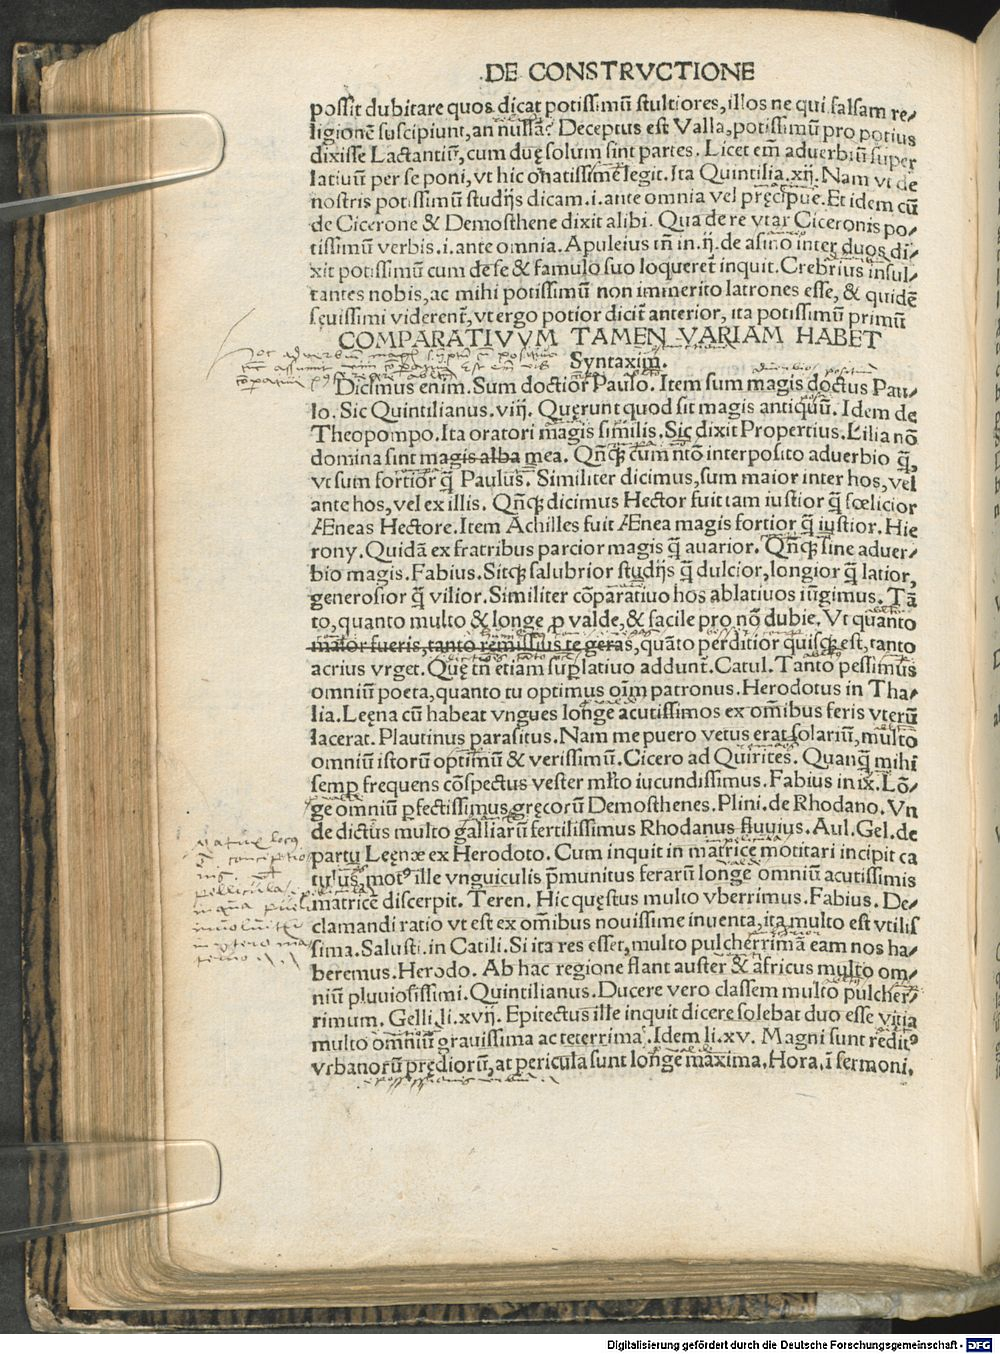 .DE CONSTRVCTIONE
possit dubitare quos dicat potissimũ stultiores, illos ne qui falsam re/
ligionẽ suscipiunt, an nullã? Deceptus est Valla, potissimũ pro potius
dixisse Lactantiũ, cum duę solum sint partes. Licet em̃ aduerbiũ super
latiuũ per se poni, vt hic ornatissimẽ legit. Ita Quintilia .xij. Nam vt de
nostris potissimũ studijs dicam .i. ante omnia vel pręcipue. Et idem cũ
de Cicerone & Demosthene dixit alibi. Qua de re vtar Ciceronis po/
tissimũ verbis .i. ante omnia. Apuleius tñ in .ij. de asino inter duos di/
xit potissimũ cum de se & famulo suo loqueret̃ inquit. Crebrius insul/
tantes nobis, ac mihi potissimũ non immerito latrones esse, & quidẽ
sęuissimi viderent̃, vt ergo potior dicit̃ anterior, ita potissimũ primũ
COMPARATIVVM TAMEN VARIAM HABET
Syntaxim.
Dicimus enim. Sum doctior Paulo. Item sum magis doctus Pau/
lo. Sic Quintilianus .viij. Quęrunt quod sit magis antiquũ. Idem de
Theopompo. Ita oratori magis similis. Sic dixit Propertius. Lilia nõ
domina sint magis alba mea. Qñq; cum nõ interposito aduerbio q̃,
vt sum fortior q̃ Paulus. Similiter dicimus, sum maior inter hos, vel
ante hos, vel ex illis. Qñq; dicimus Hector fuit tam iustior q̃ fœlicior
Æneas Hectore. Item Achilles fuit Ænea magis fortior q̃ iustior. Hie
rony. Quidã ex fratribus parcior magis q̃ auarior. Qñq; sine aduer/
bio magis. Fabius. Sitq; salubrior studijs q̃ dulcior, longior q̃ latior,
generosior q̃ vilior. Similiter cõparatiuo hos ablatiuos iũgimus. Tã
to, quanto multo & longe p valde, & facile pro nõ dubie. Vt quanto
maior fueris, tanto remissius te geras, quãto perditior quisq; est, tanto
acrius vrget. Quę tñ etiam suplatiuo addunt̃. Catul. Tanto pessimus
omniũ poeta, quanto tu optimus oĩm patronus. Herodotus in Tha/
lia. Leęna cũ habeat vngues longe acutissimos ex om̃ibus feris vterũ
lacerat. Plautinus parasitus. Nam me puero vetus erat solariũ, multo
omniũ istorũ optimũ & verissimũ. Cicero ad Quirites. Quanq̃ mihi
semp frequens cõspectus vester mlto iucundissimus. Fabius in ix. Lõ/
ge omniũ pfectissimus gręcorũ Demosthenes. Plini. de Rhodano. Vn
de dictus multo galliarũ fertilissimus Rhodanus fluuius. Aul. Gel. de
partu Leęnæ ex Herodoto. Cum inquit in matrice motitari incipit ca
tulus, mot⁹ ille vnguiculis p̃munitus ferarũ longe omniũ acutissimis
matricẽ discerpit. Teren. Hic quęstus multo vberrimus. Fabius. De/
clamandi ratio vt est ex om̃ibus nouissime inuenta, ita multo est vtilis
sima. Salusti. in Catili. Si ita res esset, multo pulcherrimã eam nos ha/
beremus. Herodo. Ab hac regione flant auster & africus multo om/
niũ pluuiosissimi. Quintilianus. Ducere vero classem multo pulcher/
rimum. Gelli. li. xvij. Epitectus ille inquit dicere solebat duo esse vitia
multo omniũ grauissima ac teterrima. Idem li. xv. Magni sunt redit⁹
vrbanorũ prędiorũ, at pericula sunt longe maxima. Hora. ĩ sermoni.
Digitalisierung gefördert durch die Deutsche Forschungsgemeinschaft - DFG